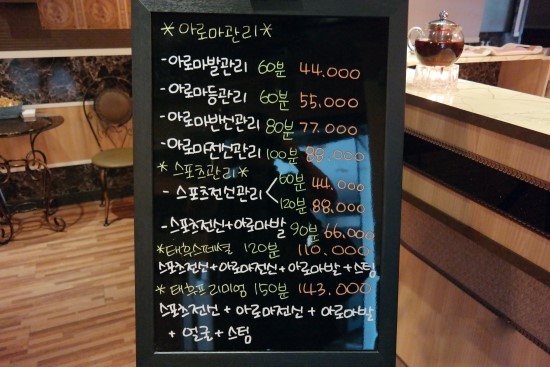 *아로마관리*
-아로마발관리 60분 44.000
-아로마등관리 60분 55.000
-아로마반신관리 80분 77.000
-아로마전신관리 100분 88.000
*스포츠관리*
-스포츠전신관리 60분 44.000
120분 88.000
-스포츠전신+아로마발 90분 66.000
*태후스페셜 120분 110.000
스포츠전신+아로마전신+아로마발+스팀
*태후프리미엄 150분 143.000
스포츠전신+아로마전신+아로마발
+얼굴+스팀